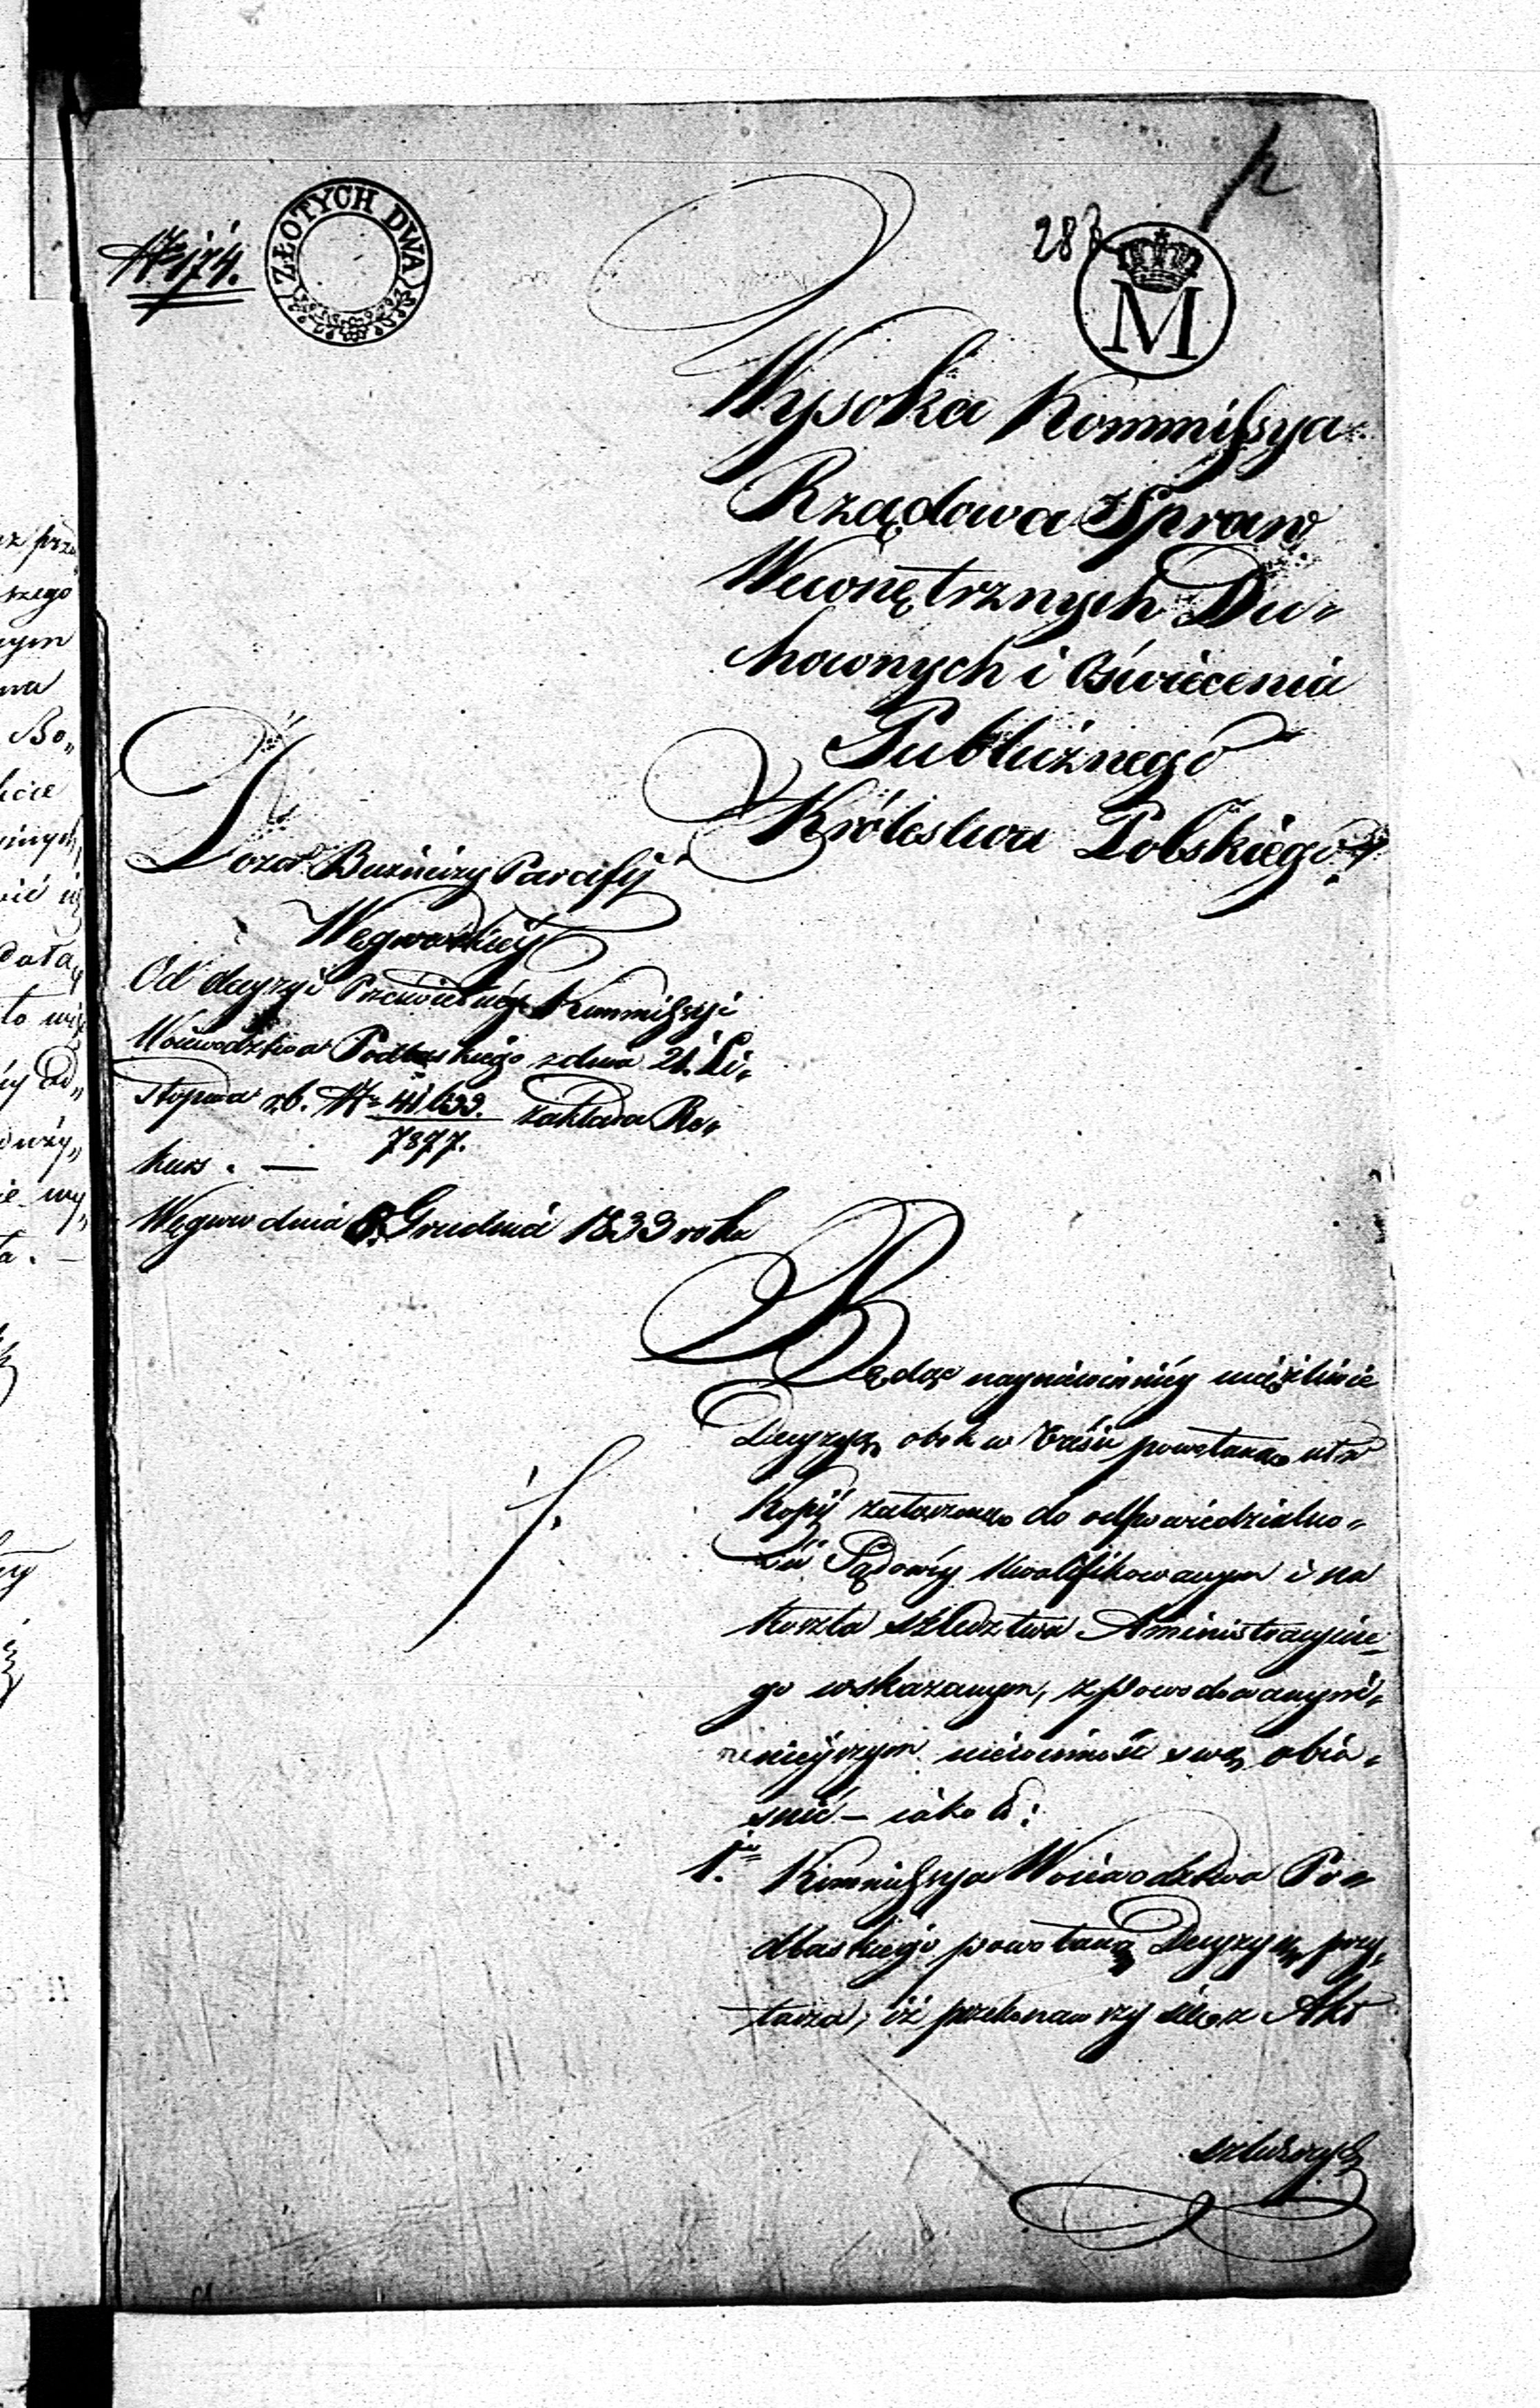 № 174.
ZŁOTYCH DWA
283
M
Wysoka Kommissya
Rządowa Spraw
Wewnętrznych Du„
chownych i Oświecenia
Publicznego
Królestwa Polskiego
Dozór Bużniczy Parafij
Węgrowskiey
Od decyzyi Prześwietney Kommissyi
Woiewodztwa Podlaskiego z dnia 21. Li„
stopada r.b. № 41633./7877. zakłada Re„
kurs. —
Węgrów dnia 8. Grudnia 1833 roku
Będąc naynaiewinniey uciążliwie
Decyzyą, obok w treści powołaną w
Kopij załączoną do odpowiedzialno„
ści Sądowey kwalifikowanym i na
koszta szledztwa Aministracyine„
go wskazanym, z powodow
nieyszym niewinność swą obia„
snić — iako to:
1. Kommissya Woiewodztwa Po„
dlaskiego powołaną Decyzyą przy„
tacza, iż przekonawszy się z Akt
szluższych